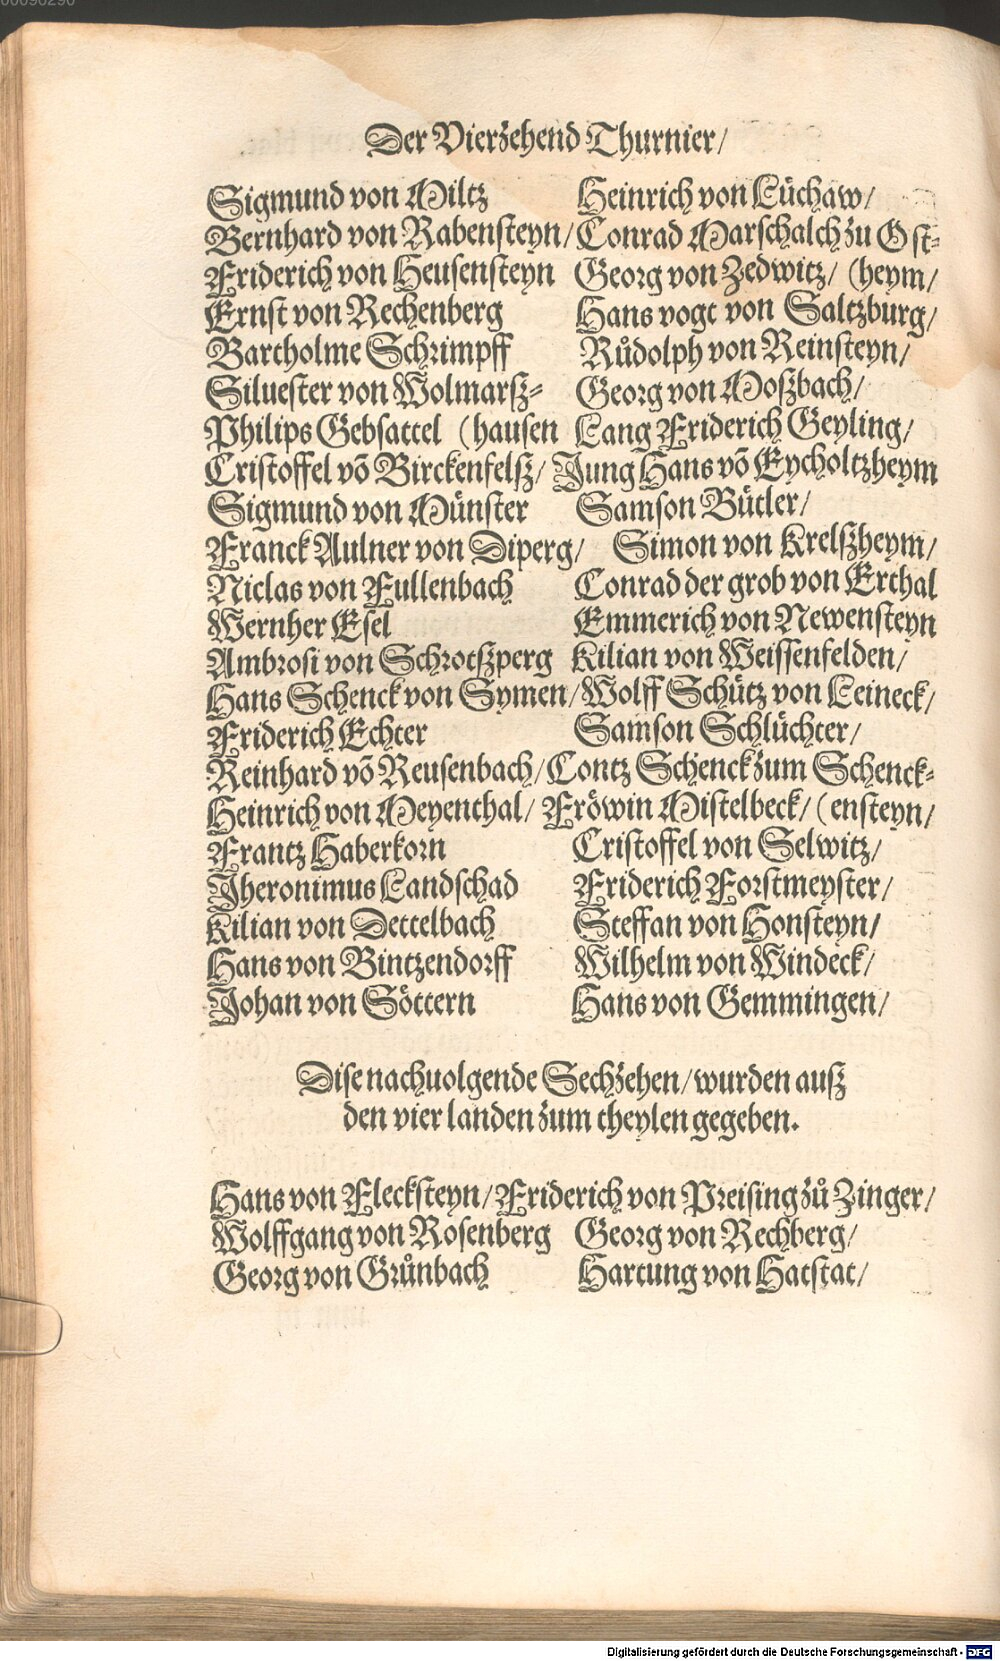 00090290
Der Vierzehend Thurnier/
Sigmund von Miltz Heinrich von Lüchaw/
Bernhard von Rabensteyn/ Conrad Marschalch zu Ost-
Friderich von Heusensteyn Georg von Zedwitz/ (heym/
Ernst von Rechenberg Hans vogt von Saltzburg/
Bartholme Schrimpff Růdolph von Reinsteyn/
Siluester von Wolmarsz- Georg von Moszbach/
Philips Gebsattel (hausen Lang Friderich Geyling/
Cristoffel võ Birckenfelsz/ Jung Hans võ Eycholtzheym
Sigmund von Münster Samson Bütler/
Franck Aulner von Diperg/ Simon von Krelszheym/
Niclas von Fullenbach Conrad der grob von Erthal
Wernher Esel Emmerich von Newensteyn
Ambrosi von Schrotszperg Kilian von Weissenfelden/
Hans Schenck von Symen/ Wolff Schütz von Leineck/
Friderich Echter Samson Schlüchter/
Reinhard võ Reusenbach/ Contz Schenck zum Schenck-
Heinrich von Meyenthal/ Fröwin Mistelbeck/ (ensteyn/
Frantz Haberkorn Cristoffel von Selwitz/
Jheronimus Landschad Friderich Forstmeyster/
Kilian von Dettelbach Steffan von Honsteyn/
Hans von Bintzendorff Wilhelm von Windeck/
Johan von Söttern Hans von Gemmingen/
Dise nachuolgende Sechzehen/ wurden ausz
den vier landen zum theylen gegeben.
Hans von Flecksteyn/ Friderich von Preising zů Zinger/
Wolffgang von Rosenberg Georg von Rechberg/
Georg von Grůnbach Hartung von Hatstat/
Digitalisierung gefördert durch die Deutsche Forschungsgemeinschaft - DFG